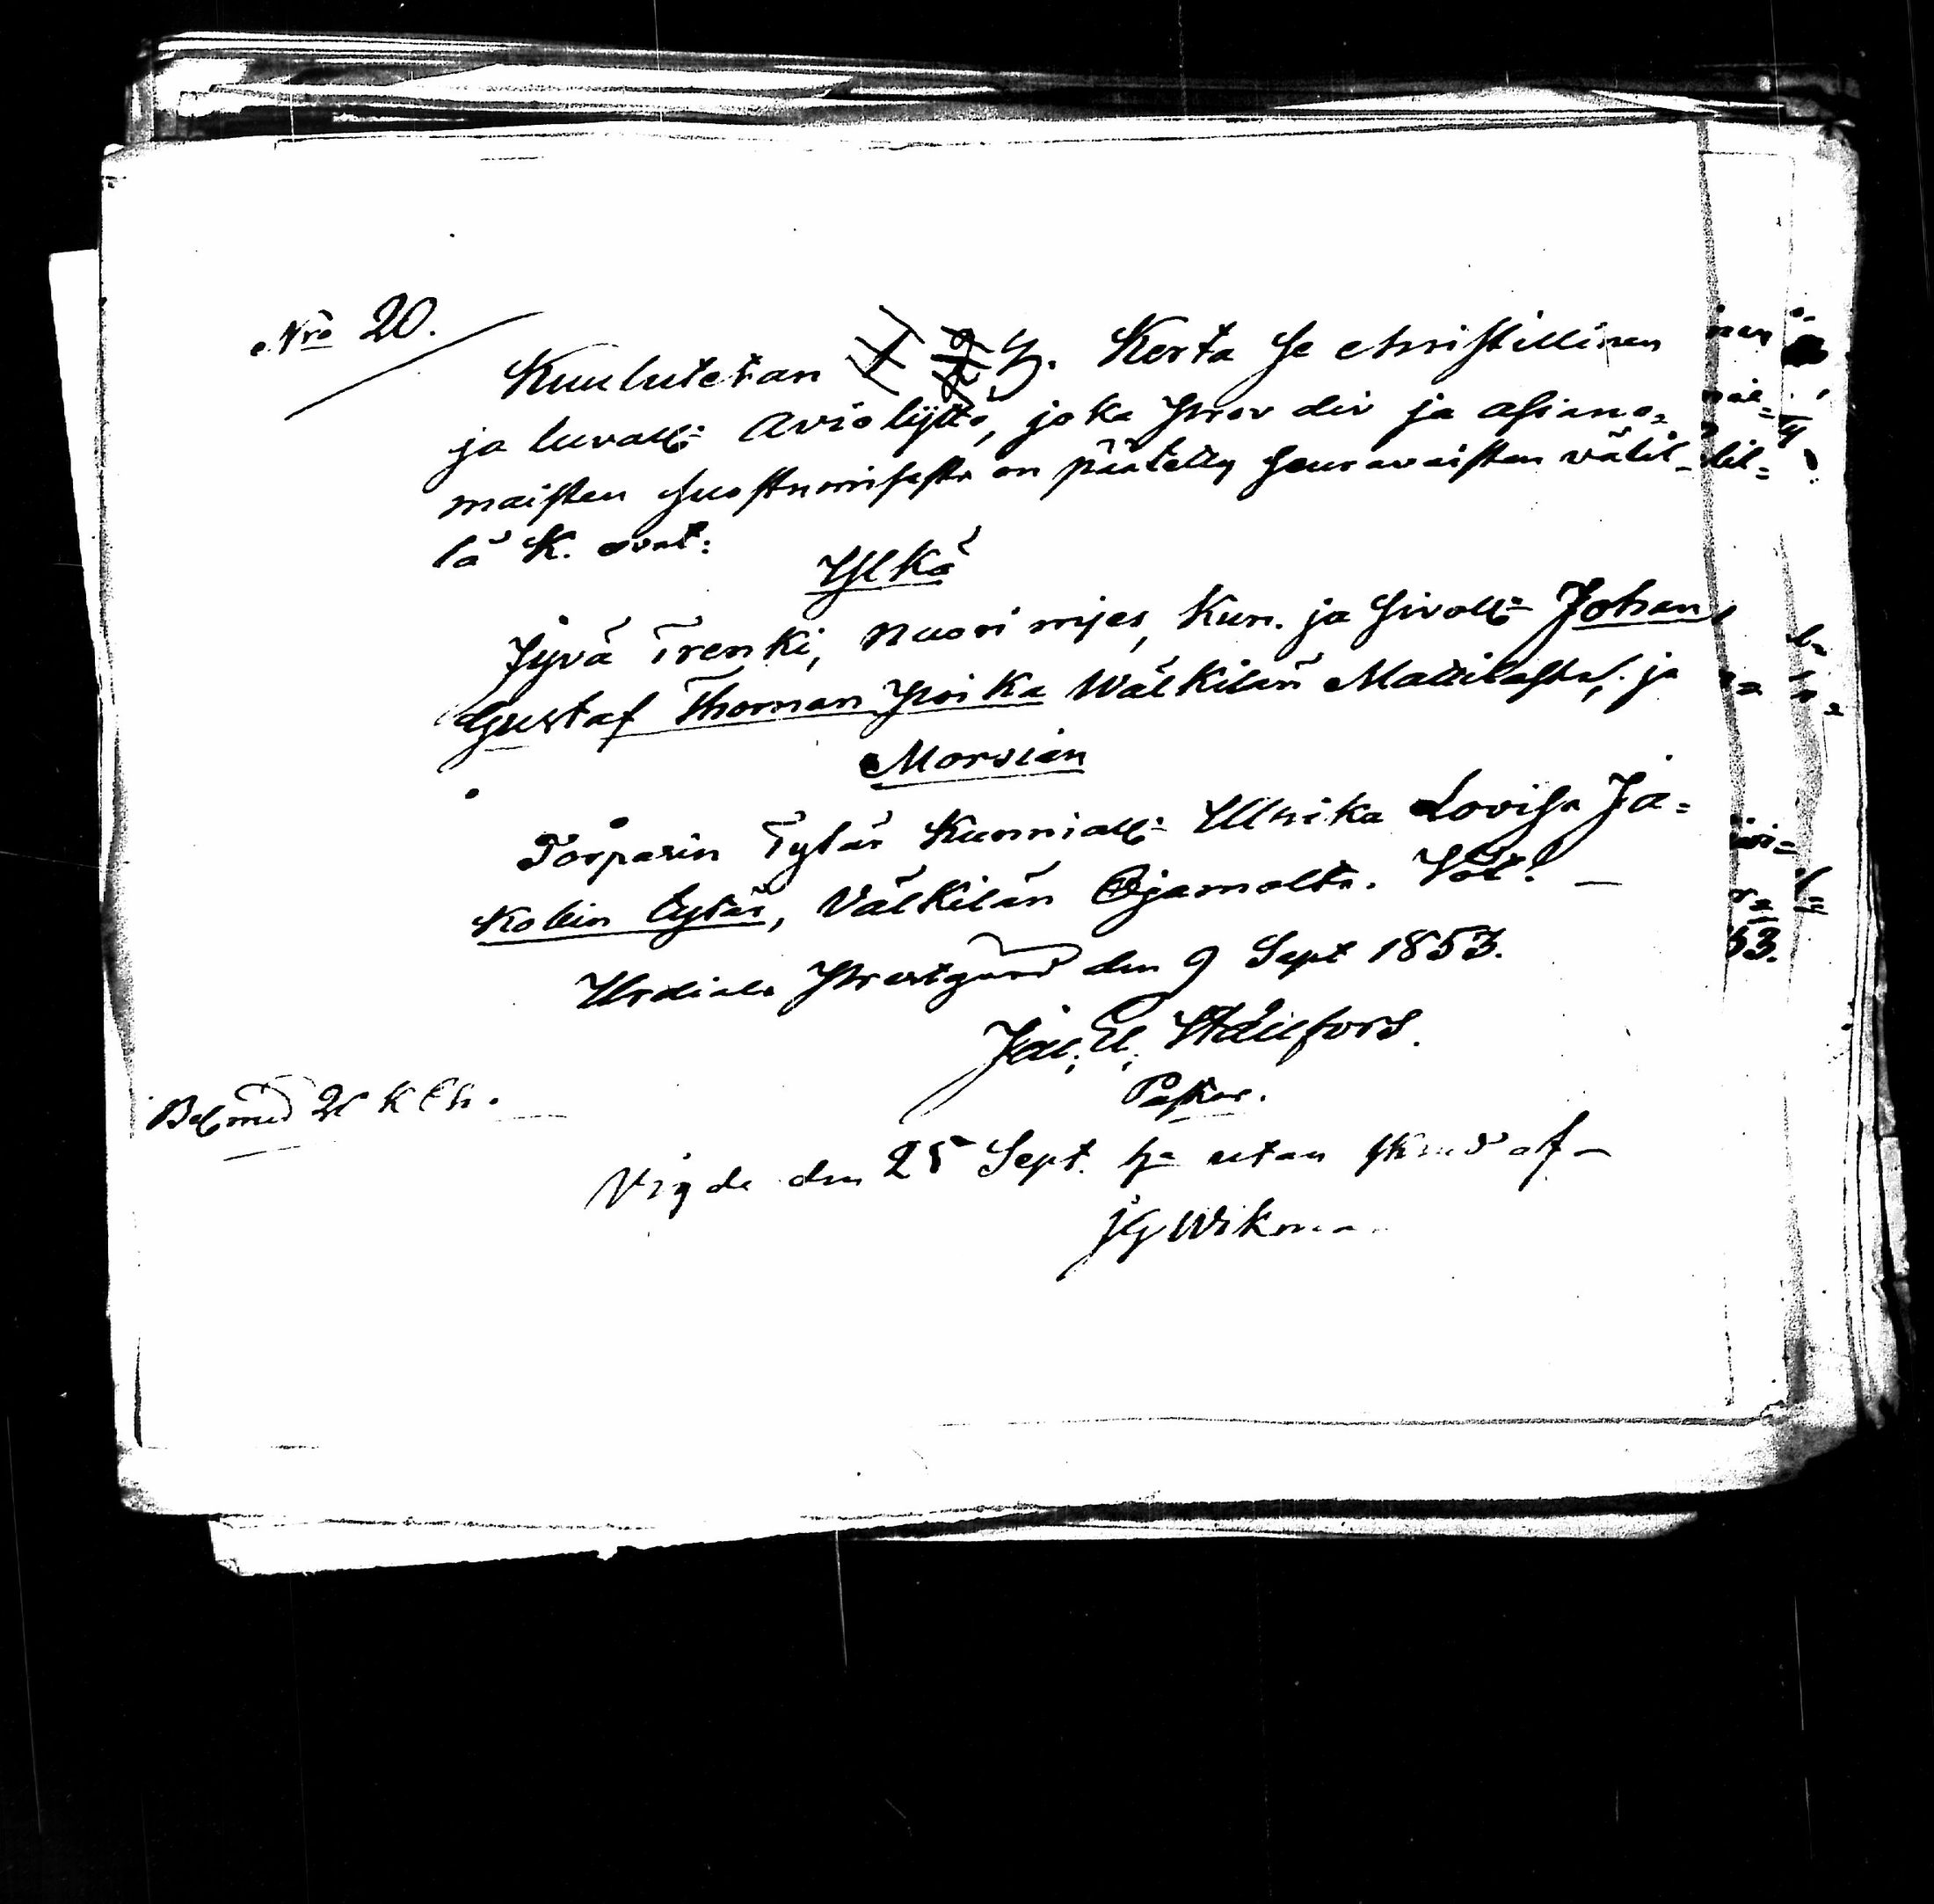 Nro 20.
Kuulutetan 1 2 3. Kerta se christillinen
ja luvall: Aviokäsky, joka prov div ja asiano=
maisten suostumisesta on päätetty seuravaisten välil=
lä K. ovat:
Ylkä
Jyvä Trenki, nuori mjes, Kun. ja sivoll: Johan
Gustaf Thoman Poika Wälkilän Mattilasta, ja
Morsian
Torparin Tytär Kunniall: Ulrika Lovisa Ja=
kobin tytär, Välkilän Ojamalta. Vot! —
Urdiala Prestgård den 9 Sept 1853.
Jac. El. Ställfors.
Pastor.
Bet med 20 K
Vigde den 25 Sept. utan skrud af
JG Wikman
nen
mai=
lil=
53.